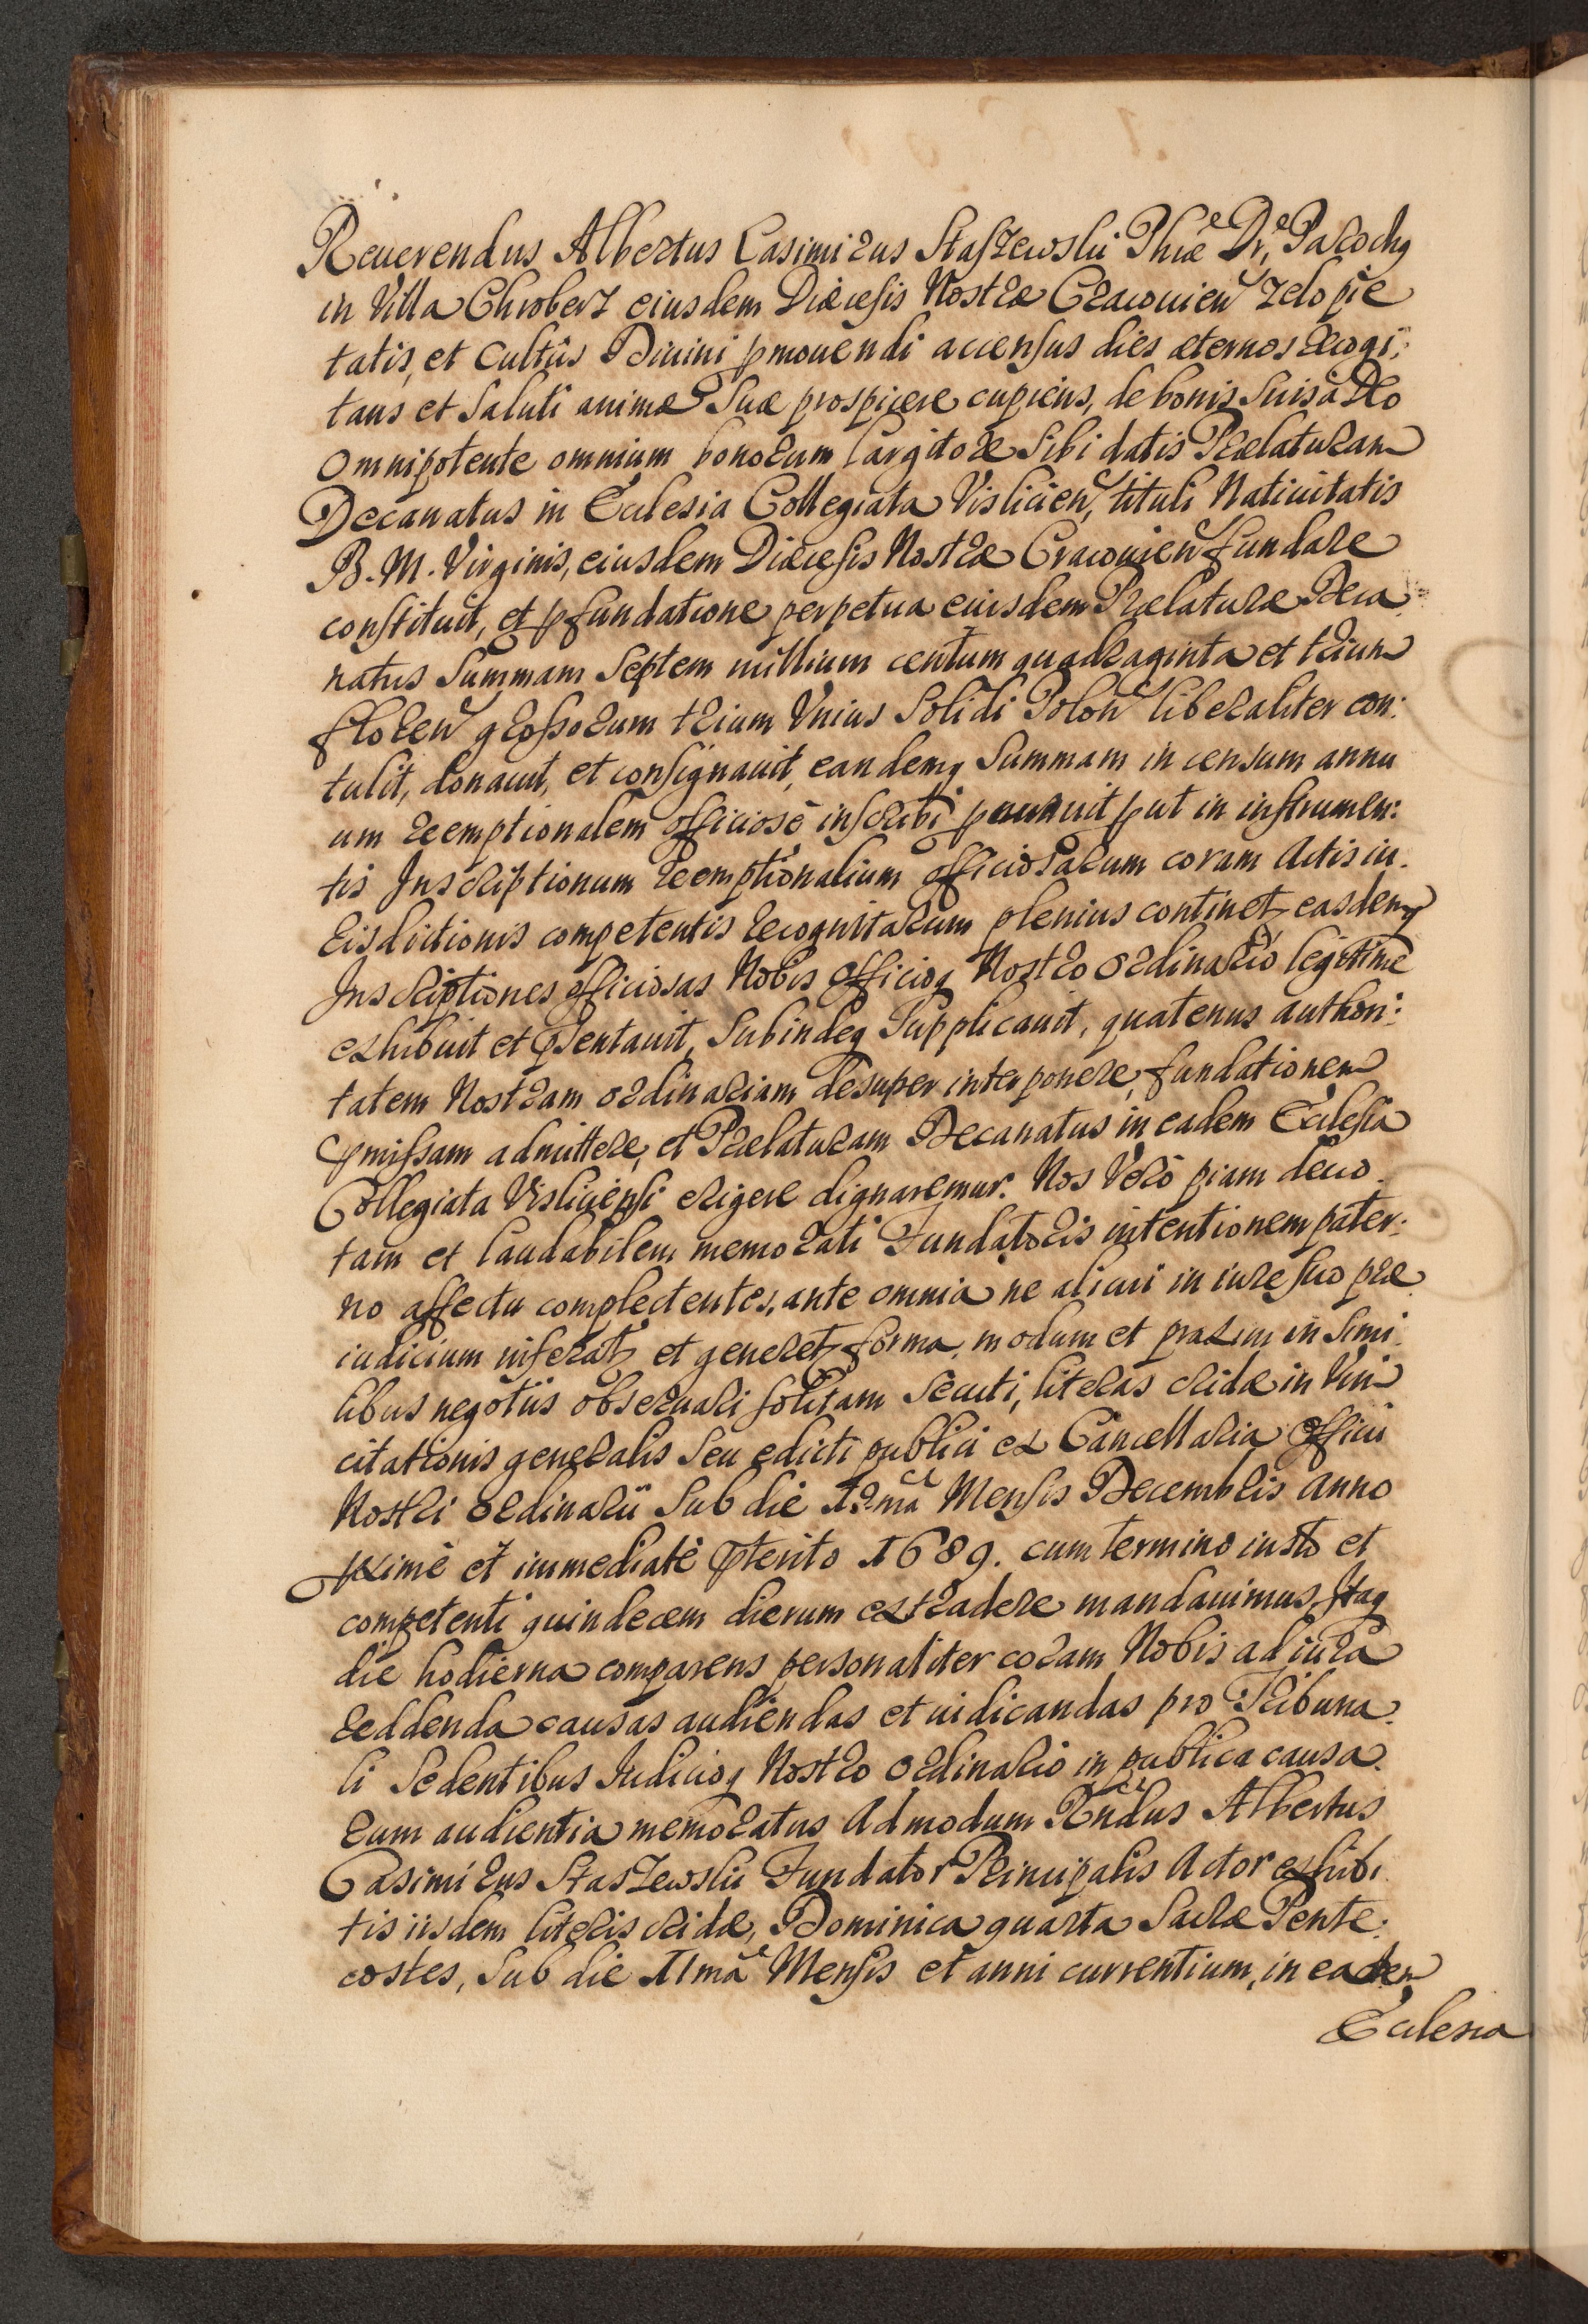 Reuerendus Albertus Casimirus Staszewski Phiæ Dr, Parochq
in Villa Chroberz eiusdem Diæcesis Nostræ Cracouien zelo pie
tatis, et Cultûs Diuini pmouendi accensus dies æternos recogi:
tans et saluti animæ Suæ prospicere cupiens, de bonis Suis à Deo
Omnipotente omnium bonorum largitore Sibi datis Prælaturam
Decanatus in Ecclesia Collegiata Vislicien, tituli Natiuitatis
B. M. Virginis, eiusdem Diæcesis Nostræ Cracouien fundare
constituit, et p fundatione perpetua eiusdem Prælaturæ Deca
natus Summam Septem millium centum quadraginta et trium
floren grossorum trium Vnius Solidi Polon liberaliter con:
tulit, donauit, et consignauit, eandemq Summam in censum annu
um reemptionalem officiosè inscribi pcurauit put in instrumen:
tis Inscriptionum reemptionalium officiosarum coram Actis iu.
risdictionis competentis recognitarum plenius continet, easdemq
Inscriptiones officiosas Nobis Officioq Nostro ordinario legitime
exhibuit et psentauit, Subindeq Supplicauit, quatenus authori:
tatem Nostram ordinariam desuper interponere, fundationem
pmissam admittere, et Prælaturam Decanatus in eadem Ecclesia
Collegiata Visliciensi erigere dignaremur. Nos Verò piam deuo.
tam et laudabilem memorati Fundatoris intentionem pater:
no affectu complectentes, ante omnia ne alicui in iure suo præ
iudicium inferat, et generet, forma, modum et praxim in Simi
libus negotiis obseruari solitam Secuti, literas cridæ in Vim
citationis generalis Seu edicti publici ex Cancellaria Officii
Nostri Ordinarii Sub die 12ma Mensis Decembris anno
pximè et immediatè pterito 1689. cum termino iusto et
competenti quindecem dierum extradere mandauimus, Itaq
die hodierna comparens personaliter coram Nobis ad iura
reddenda causas audiendas et iudicandas pro Tribuna.
li Sedentibus Iudicioq Nostro Ordinario in publica causa.
rum audientia memoratus Admodum Rndus Albertus
Casimirus Staszewski Fundator Principalis Actor exhibi
tis iisdem literis cridæ, Dominica quarta Sacræ Pente.
costes, Sub die 11ma Mensis et anni currentium, in eadem
Ecclesia